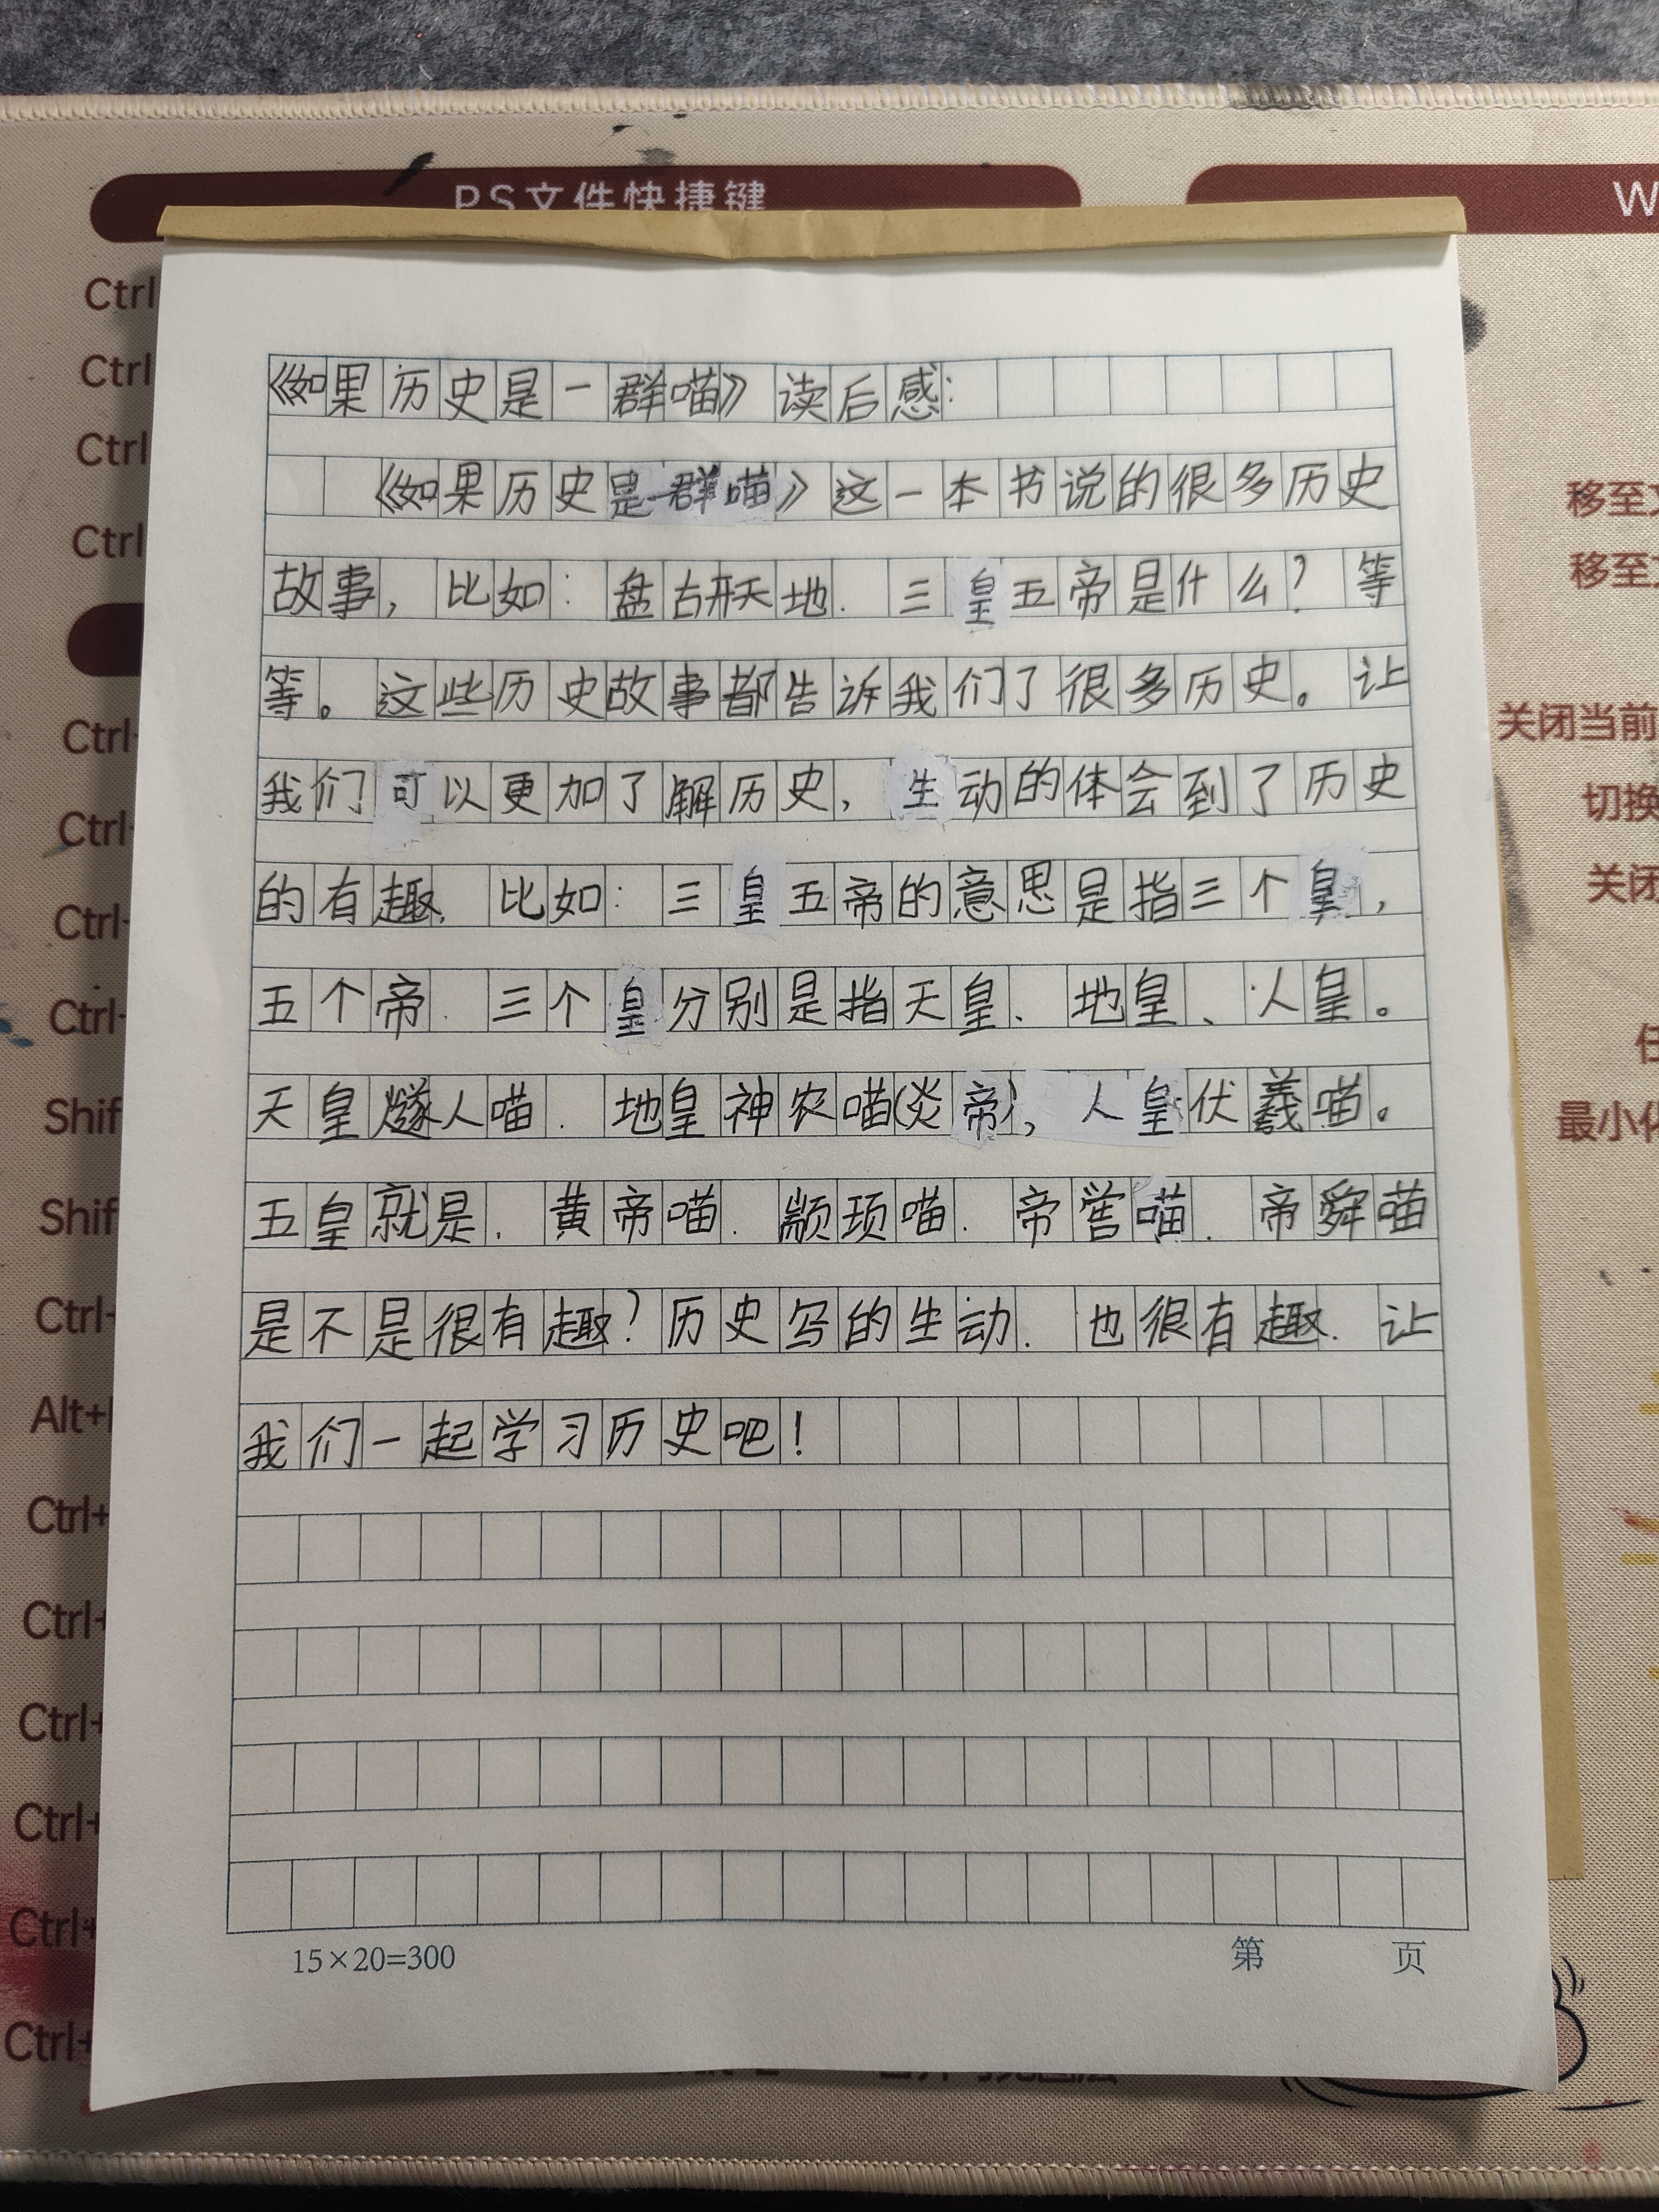 PS文件快捷键
W
Ctrl
Ctrl
Ctrl
Ctrl
Ctrl
Ctrl
Ctrl
Ctrl
Shif
Shif
Ctrl
Alt+
Ctrl+
Ctrl+
Ctrl+
Ctrl+
Ctrl+
Ctrl+
《如果历史是一群喵》读后感:
《如果历史是一群喵》这一本书说的很多历史
故事,比如:盘古开天地.三皇五帝是什么?等
等。这些历史故事都告诉我们了很多历史。让
我们可以更加了解历史,生动的体会到了历史
的有趣.比如:三皇五帝的意思是指三个皇,
五个帝.三个皇分别是指天皇、地皇、人皇。
天皇燧人喵.地皇神农喵(炎帝),人皇伏羲喵。
五皇就是.黄帝喵.颛顼喵.帝喾喵.帝舜喵
是不是很有趣?历史写的生动.也很有趣.让
我们一起学习历史吧!
15×20=300
第 页
移至
移至
关闭当前
切换
关闭
最小化